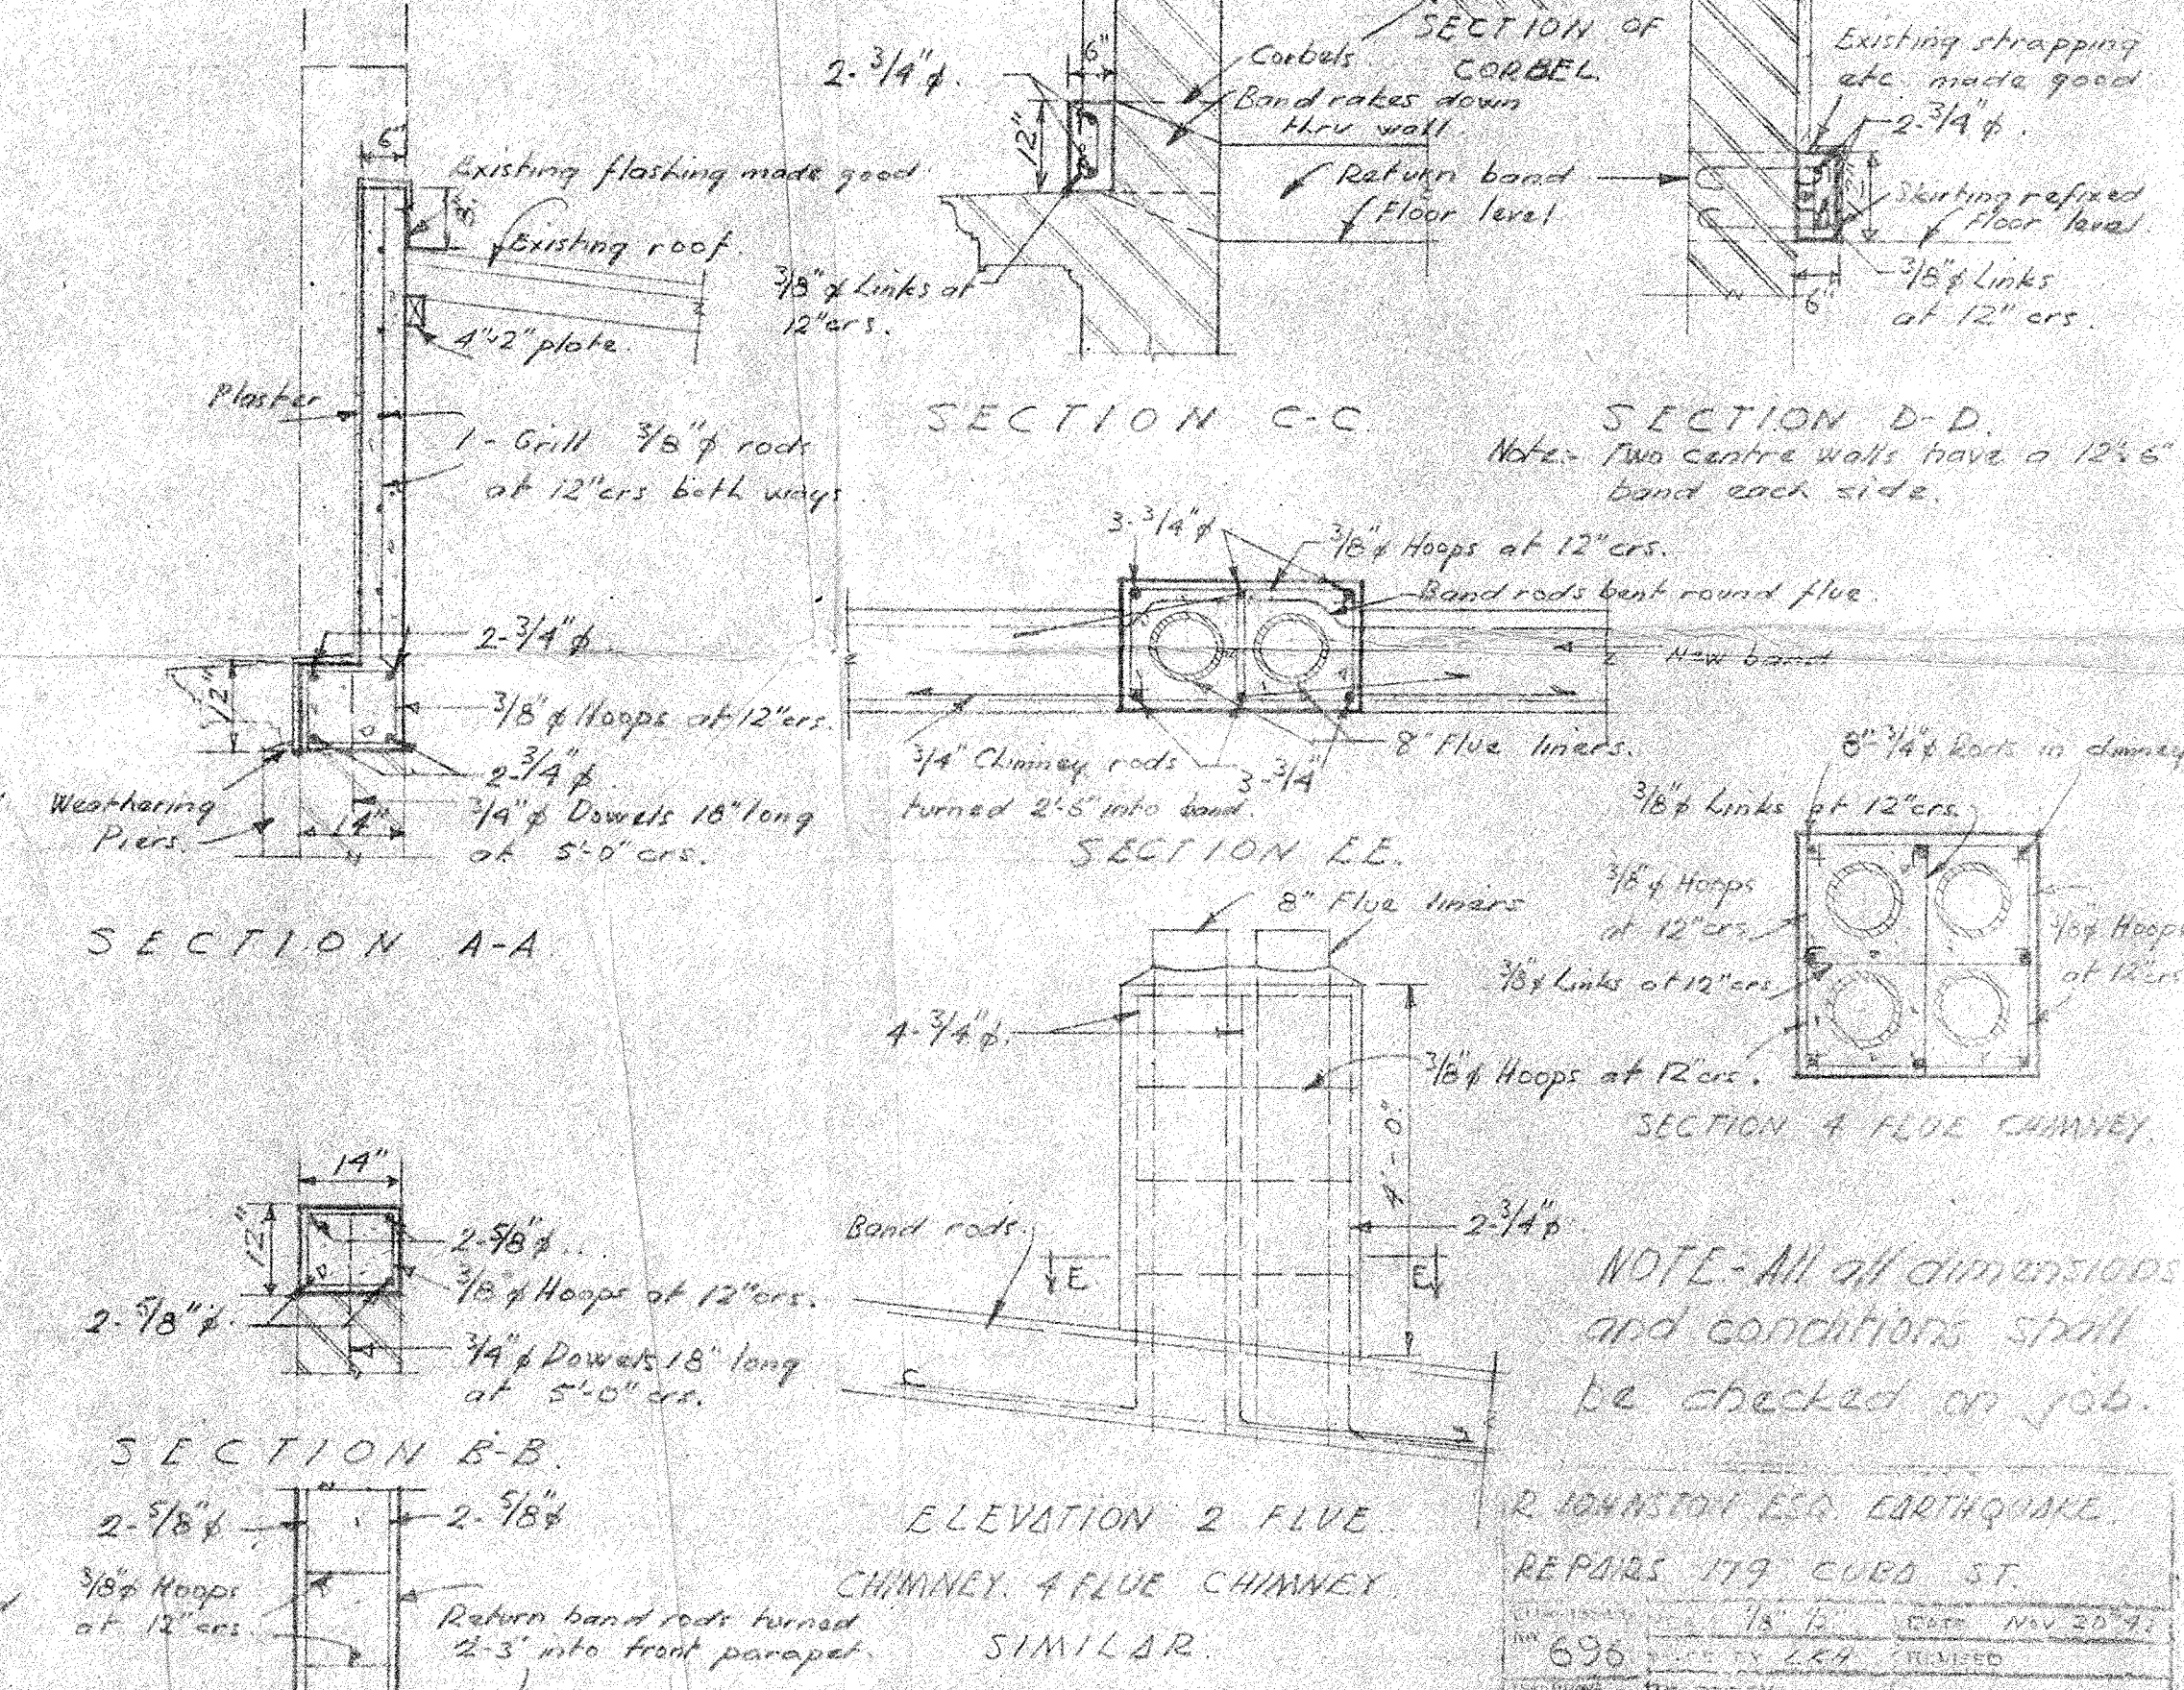 6"
Existing flashing made good
Existing roof.
4"x2" plate.
Plaster
1 - Grill 3/8"φ rods
at 12"crs both ways
2-3/4"φ.
12"
3/8"φ Hoops at 12"crs.
2-3/4"φ.
Weathering
Piers.
14"
3/4"φ Dowels 18" long
at 5'-0" crs.
SECTION A-A.
14"
12"
2-5/8"φ.
3/8"φ Hoops at 12"crs.
2-5/8"φ.
3/4"φ Dowels 18" long
at 5'-0" crs.
SECTION B-B.
2-5/8"φ
2-5/8"φ
3/8"φ Hoops
at 12"crs.
Return band rods turned
2'-3" into front parapet.
2-3/4"φ.
6"
12"
Corbels.
SECTION OF
CORBEL.
Band rakes down
thru wall.
Return band
Floor level
3/8"φ Links at
12"crs.
SECTION C-C.
Existing strapping
etc. made good
2-3/4"φ.
Skirting refixed
Floor level.
3/8"φ Links
at 12" crs.
6"
SECTION D-D.
Note:- Two centre walls have a 12"x6"
band each side.
3-3/4"φ
3/8"φ Hoops at 12"crs.
Band rods bent round flue.
New band
8" Flue liners.
3/4" Chimney rods
3-3/4"
turned into band.
SECTION EE.
8" Flue liners
4-3/4"φ.
3/8"φ Hoops at 12"crs.
4'-0"
2-3/4"φ.
Band rods.
E
E
ELEVATION 2 FLUE
CHIMNEY. 4 FLUE CHIMNEY
SIMILAR.
8-3/4"φ Rods in chimney
3/8"φ Links at 12"crs.
3/8"φ Hoops
at 12"crs.
3/8"φ Hoops
at 12"crs
3/8"φ Links at 12"crs
SECTION 4 FLUE CHIMNEY.
NOTE:- All all dimensions
and conditions shall
be checked on job.
R JOHNSTON ESQ. EARTHQUAKE.
REPAIRS 179 CUBA ST
DATE Nov
696
LKA
REVISED